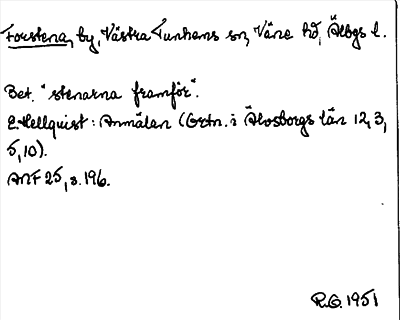 Forstena, by, Västra Tunhems sn, Väne hd, Älvgs l.
Bet. "stenarna framför".
E. Hellquist: Anmälan (Ortn. i Älvsborgs län 12, 3,
5, 10).
ANF 25, s. 196.
R.G. 1951